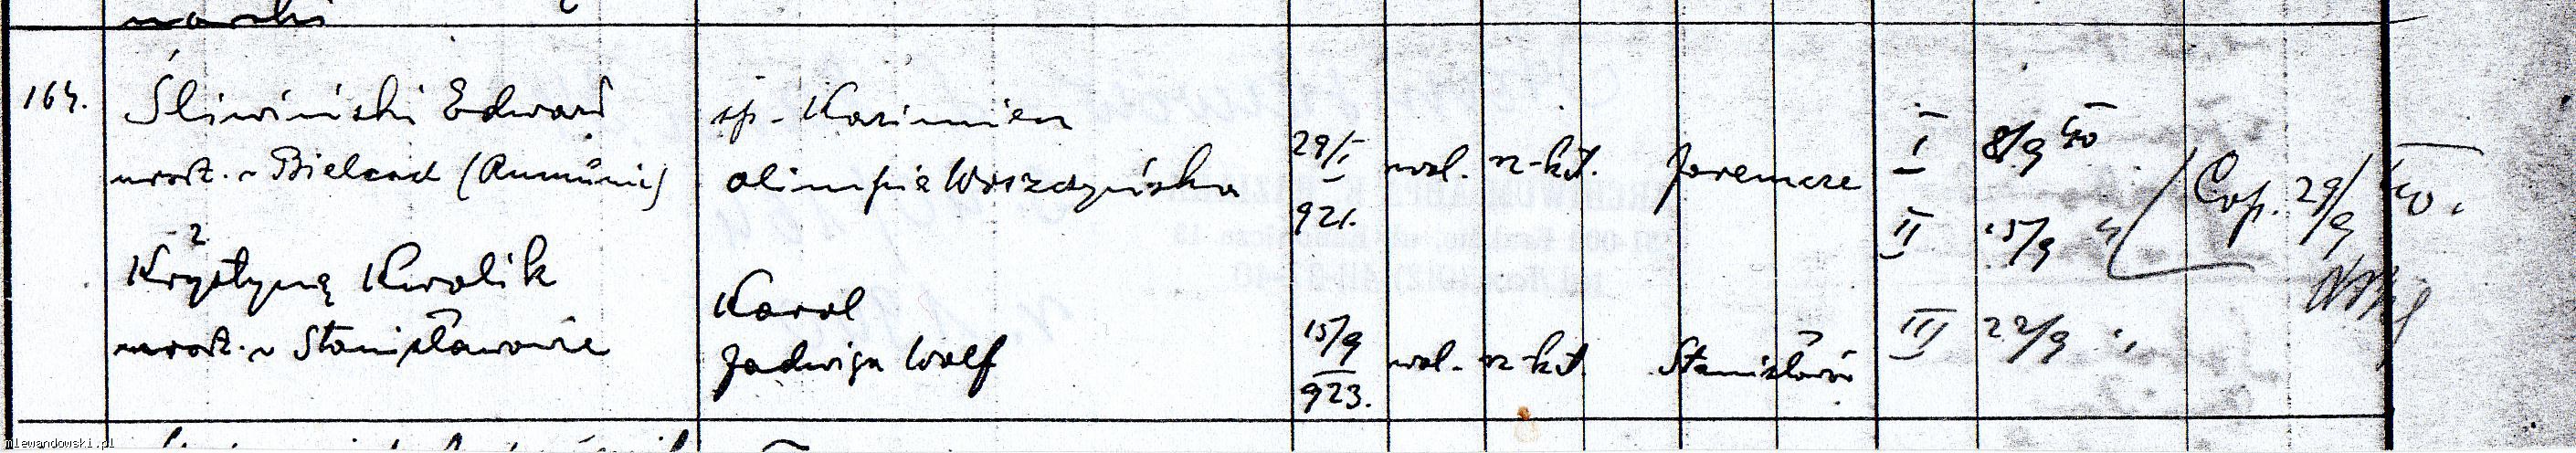 164.
Śliwiński Edward
urodz. w (Rumunii)
z
Krystyną Królik
urodz. w Stanisławowie
sp. Kazimierz
Olimpia
Karol
Jadwiga Wolf
29/I
921.
15/9
923.
wol. rz-kt. Jaremcze
wol. rz-kt. Stanisławów
I 8/9 40
II 15/9 "
III 22/9 "
Cop. 29/9 40.
mlewandowski.pl